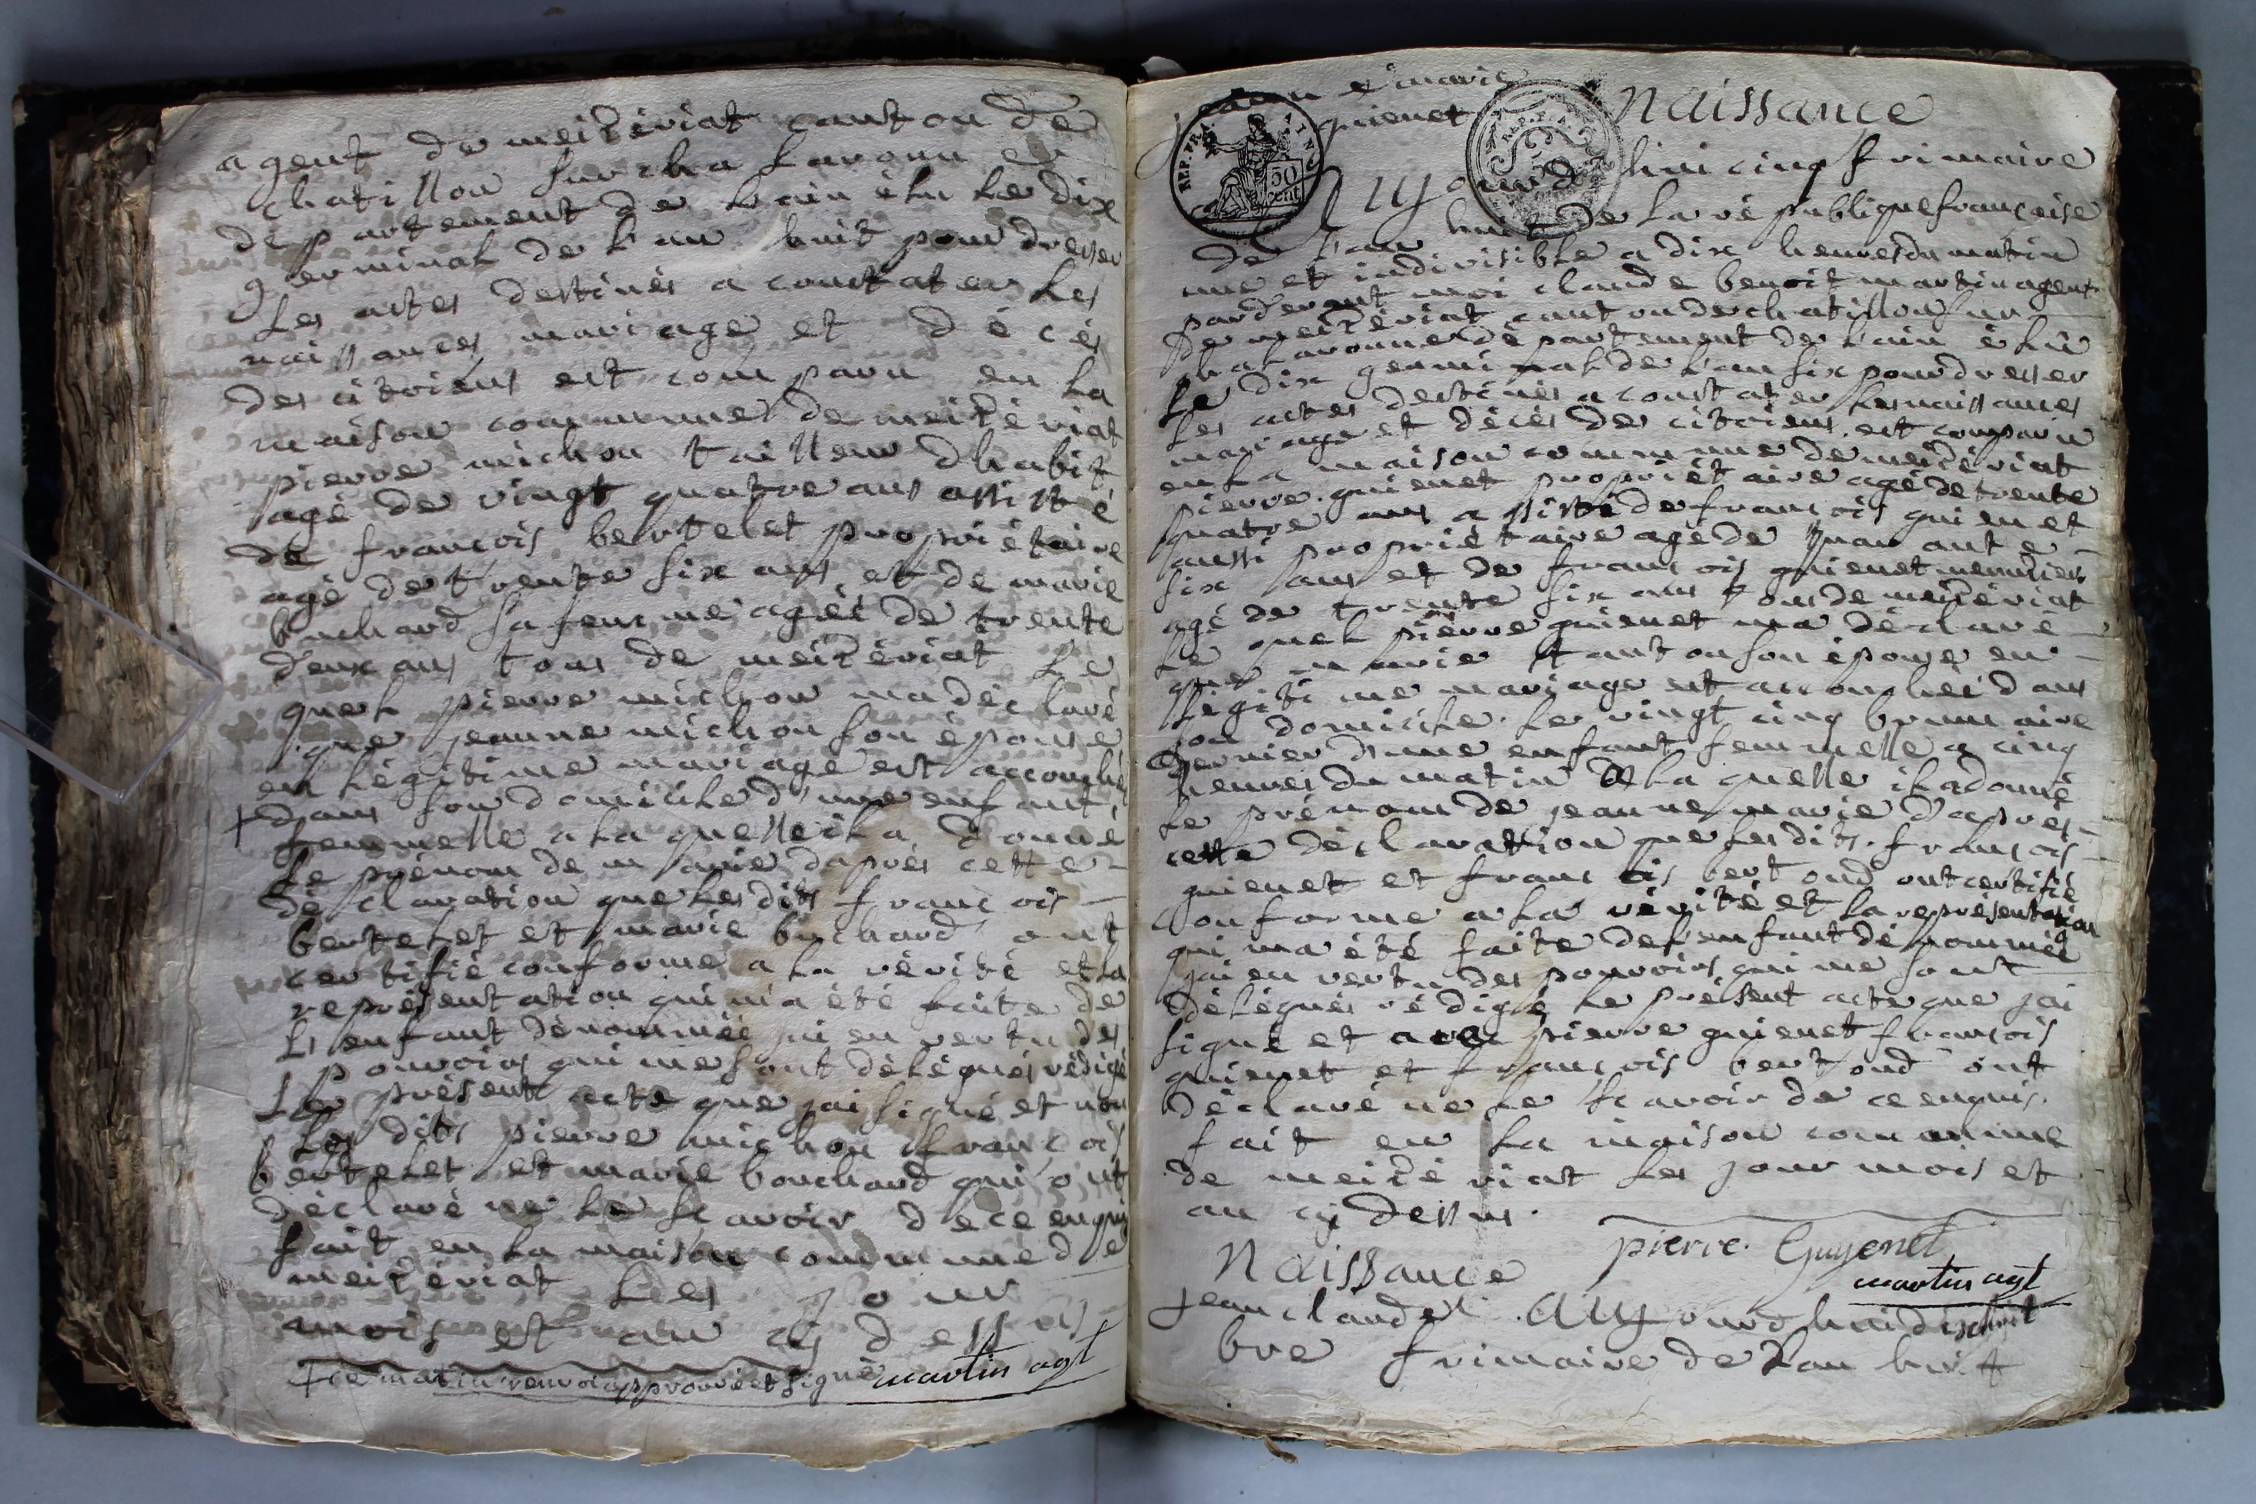 agent de meizériat canton de
chatillon sur cha laronn et
département de l'ain élu le dix
germinal de l'an huit pour dresser
les actes destinés a constater les
naissances mariage et décés
des citoiens est comparu en la
maison commune de meizériat
pierre michon tailleur dhabit
agé de vingt quatre ans assisté
de francois bertelet propriétaire
agé de trente six ans et de marie
buchard sa femme agée de trente
deux ans tous de meizériat le
quel pierre michon ma déclaré
que jeanne michon son épouse
en légitime mariage est accouchée
+ dans son domicile d'une enfant
femmelle a la quelle il a donné
le prénom de marie daprès cette
déclaration que lesdits francois
bertelet et marie buchard ont
certifié conforme a la vérité et la
représentation qui ma été faite de
l'enfant dénommée jai en vertu des
pouvoirs qui me sont délégués rédigé
le présent acte que jai signé et non
les dits pierre michon francois
bertelet et marie bouchard qui ont
déclaré ne le scavoir de ce enquis
fait en la maison commune de
meizériat les jour
mois et an cy dessus
+ ce matin renvoi approuvé et signé martin agt
jeanne marie
guienet
naissance
REP. FRA.
50
cent
Aujourdhui cinq frimaire
de l'an huit de la république francoise
une et indivisible a dix heures du matin
pardevant moi claude benoit martin agent
de meizériat canton de chatillon sur
chalaronne département de l'ain élû
le dix germinal de l'an six pour dresser
les actes destinés a constater les naissances
mariage et décés des citoiens est comparu
en la maison commune de meizériat
pierre guienet propriétaire agé de trente
quatre ans assisté de francois guienet
aussi propriétaire agé de quarante
six ans et de francois guienet menuisier
agé de trente six ans tous de meizériat
le quel pierre guienet ma déclaré
que marie tanton son épouse en
légitime mariage est accouchée dans
son domicile le vingt cinq brumaire
dernier d'une enfant femmelle a cinq
heures du matin a la quelle il a donné
le prénom de jeanne marie d'apres
cette déclaration que lesdits francois
guienet et francois bertond ont certifié
conforme a la vérité et la représentation
qui ma été faite de l'enfant dénommée
jai en vertu des pouvoirs qui me sont
délégués rédigé le présent acte que jai
signé et avec pierre guienet francois
guienet et francois bertond ont
déclaré ne le scavoir de ce enquis.
fait en la maison commune
de meizériat les jour mois et
an cy dessus.
pierre Guyenet
martin agt
Naissance
jean claude Aujourdhui dixhuit
bre frimaire de l'an huit